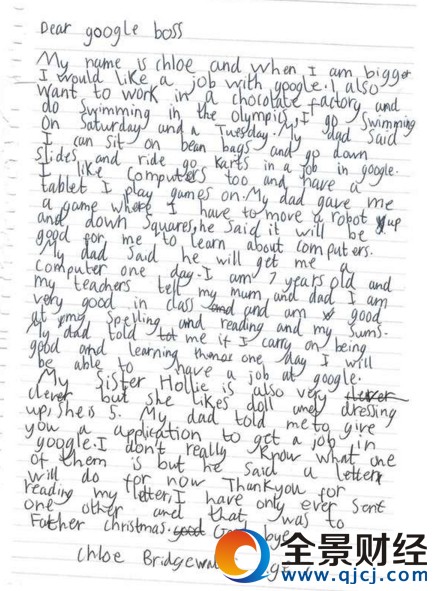 Dear google boss
My name is chloe and when I am bigger
I would like a job with google. I also
want to work in a chocolate factory and
do swimming in the olympics. I go swimming
on Saturday and a Tuesday. My dad said
I can sit on bean bags and go down
slides and ride go karts in a job in google.
I like computers too and have a
tablet I play games on. My dad gave me
a game where I have to move a robot up
and down squares, he said it will be
good for me to learn about computers.
My dad said he will get me a
computer one day. I am 7 years old and
my teachers tell my mum and dad I am
very good in class and am good
at my spelling and reading and my sums.
My dad told me if I carry on being
good and learning one day I will
be able to have a job at google.
My sister Hollie is also very
clever but she likes doll and dressing
up, she is 5. My dad told me to give
you a application to get a job in
google. I don't really know what one
of them is but he said a letter
will do for now. Thankyou for
reading my letter, I have only ever sent
one other and that was to
Father christmas. Good bye
Chloe
全景财经
www.qjcj.com